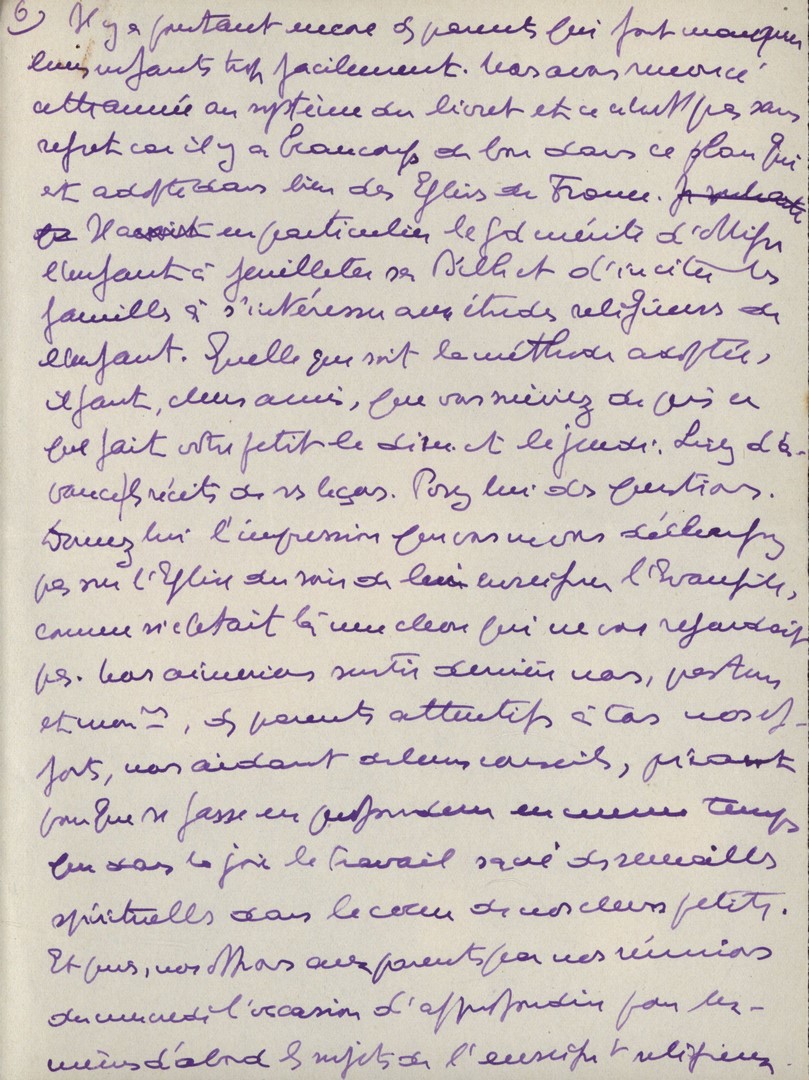 6) Il y a pourtant encore ds parents qui font manquer
leurs enfants trop facilement. Nous avons renoncé
cette année au système du livret et ce n'est pas sans
regret car il y a beaucoup de bon dans ce plan qui
est adopté dans bien des Eglises de France. Je souhaite
Il avait en particulier le gd mérite d'obliger
l'enfant à feuilleter sa Bible et d'inciter les
familles à s'intéresser aux études religieuses de
l'enfant. Quelle que soit la méthode adoptée,
il faut, chers amis, que vous suiviez de près ce
que fait votre petit le dim. et le jeudi. Lisez d'a-
vance ls récits de ss leçons. Posez lui des questions.
Donnez lui l'impression que vous ne vous déchargez
pas sur l'Eglise du soin de lui enseigner l'Evangile,
comme si c'était là une chose qui ne vous regardait
pas. Nous aimerions sentir derrière nous, pasteurs
et mon^rs, ds parents attentifs à tous nos ef-
forts, nous aidant de leurs conseils, priant
pour que se fasse en profondeur en même temps
que dans la joie le travail sacré des semailles
spirituelles dans le coeur de nos chers petits.
Et puis, nous offrons aux parents par nos réunions
du mercredi l'occasion d'approfondir pour eux-
mêmes d'abord ls sujets de l'enseig^t religieux